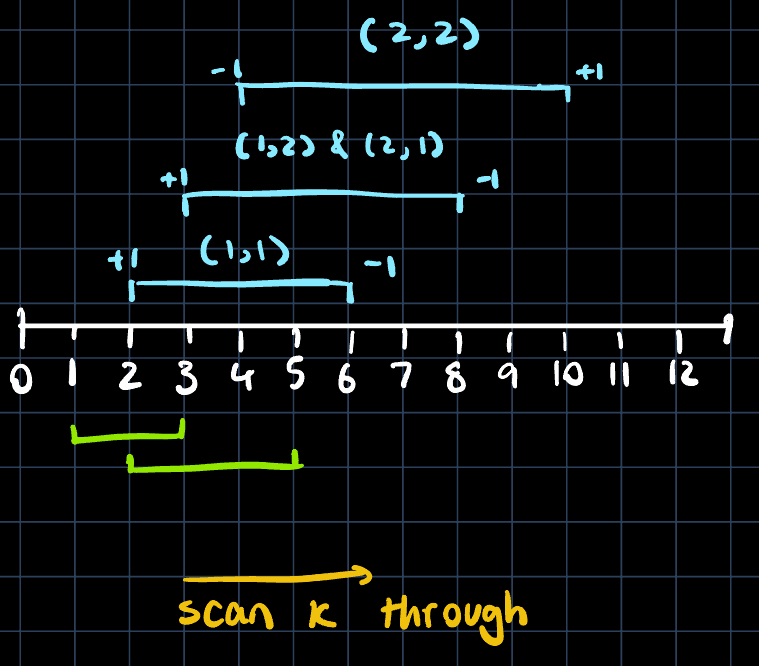 (2,2)
-1 +1
(1,2) & (2,1)
+1 -1
+1 (1,1) -1
0 1 2 3 4 5 6 7 8 9 10 11 12
scan k through